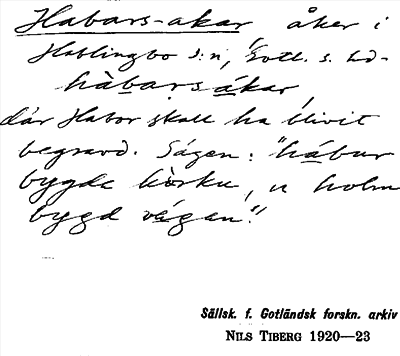 Habars-akar åker i
Hablingbo s:n, Gotl. s. hd-
hàbars ákar,
där Habor skall ha blivit
begravd. Sägen: "hábur
bygde körku, u holm
bygd vágen."
Sällsk. f. Gotländsk forskn. arkiv
NILS TIBERG 1920—23